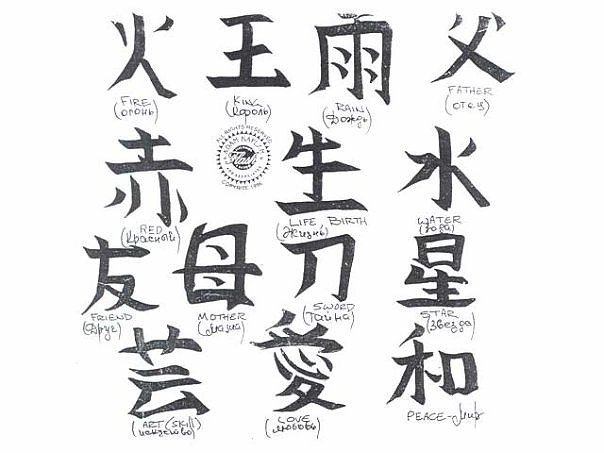 火 王 雨 父
FIRE KING RAIN FATHER
(огонь) (Король) (Дождь) (отец)
赤 生 水
ALL RIGHTS RESERVED
COPYRITE 1996
RED LIFE, BIRTH WATER
(Красный) (Жизнь) (вода)
友 母 刀 星
FRIEND MOTHER SWORD STAR
(Друг) (мама) (Тайна) (звезда)
芸 愛 和
(ART (SKILL) LOVE PEACE-Мир
искусство) (любовь)